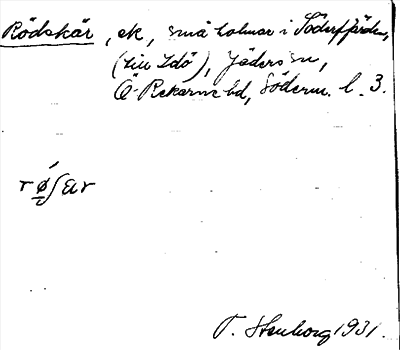 Rödskär, sk, små holmar i Söderfjärden,
(till Idö), Jäders sn,
Ö. Rekarne hd, Söderm. l. 3.
T. Stenborg 1931.